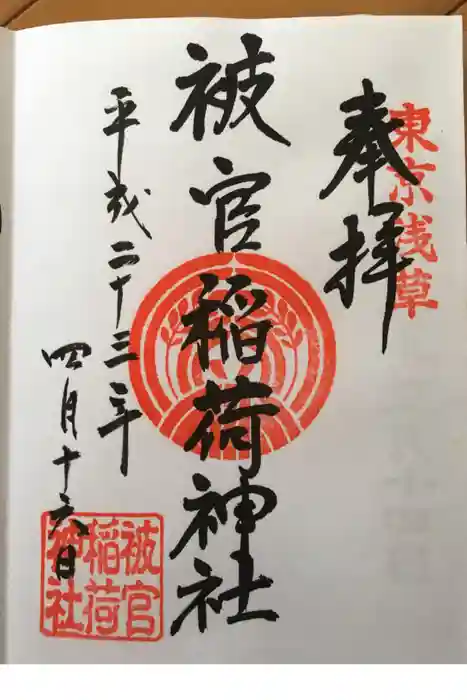 東京浅草
奉拝
被官稲荷神社
平成二十三年
四月十六日
被官
稲荷
神社